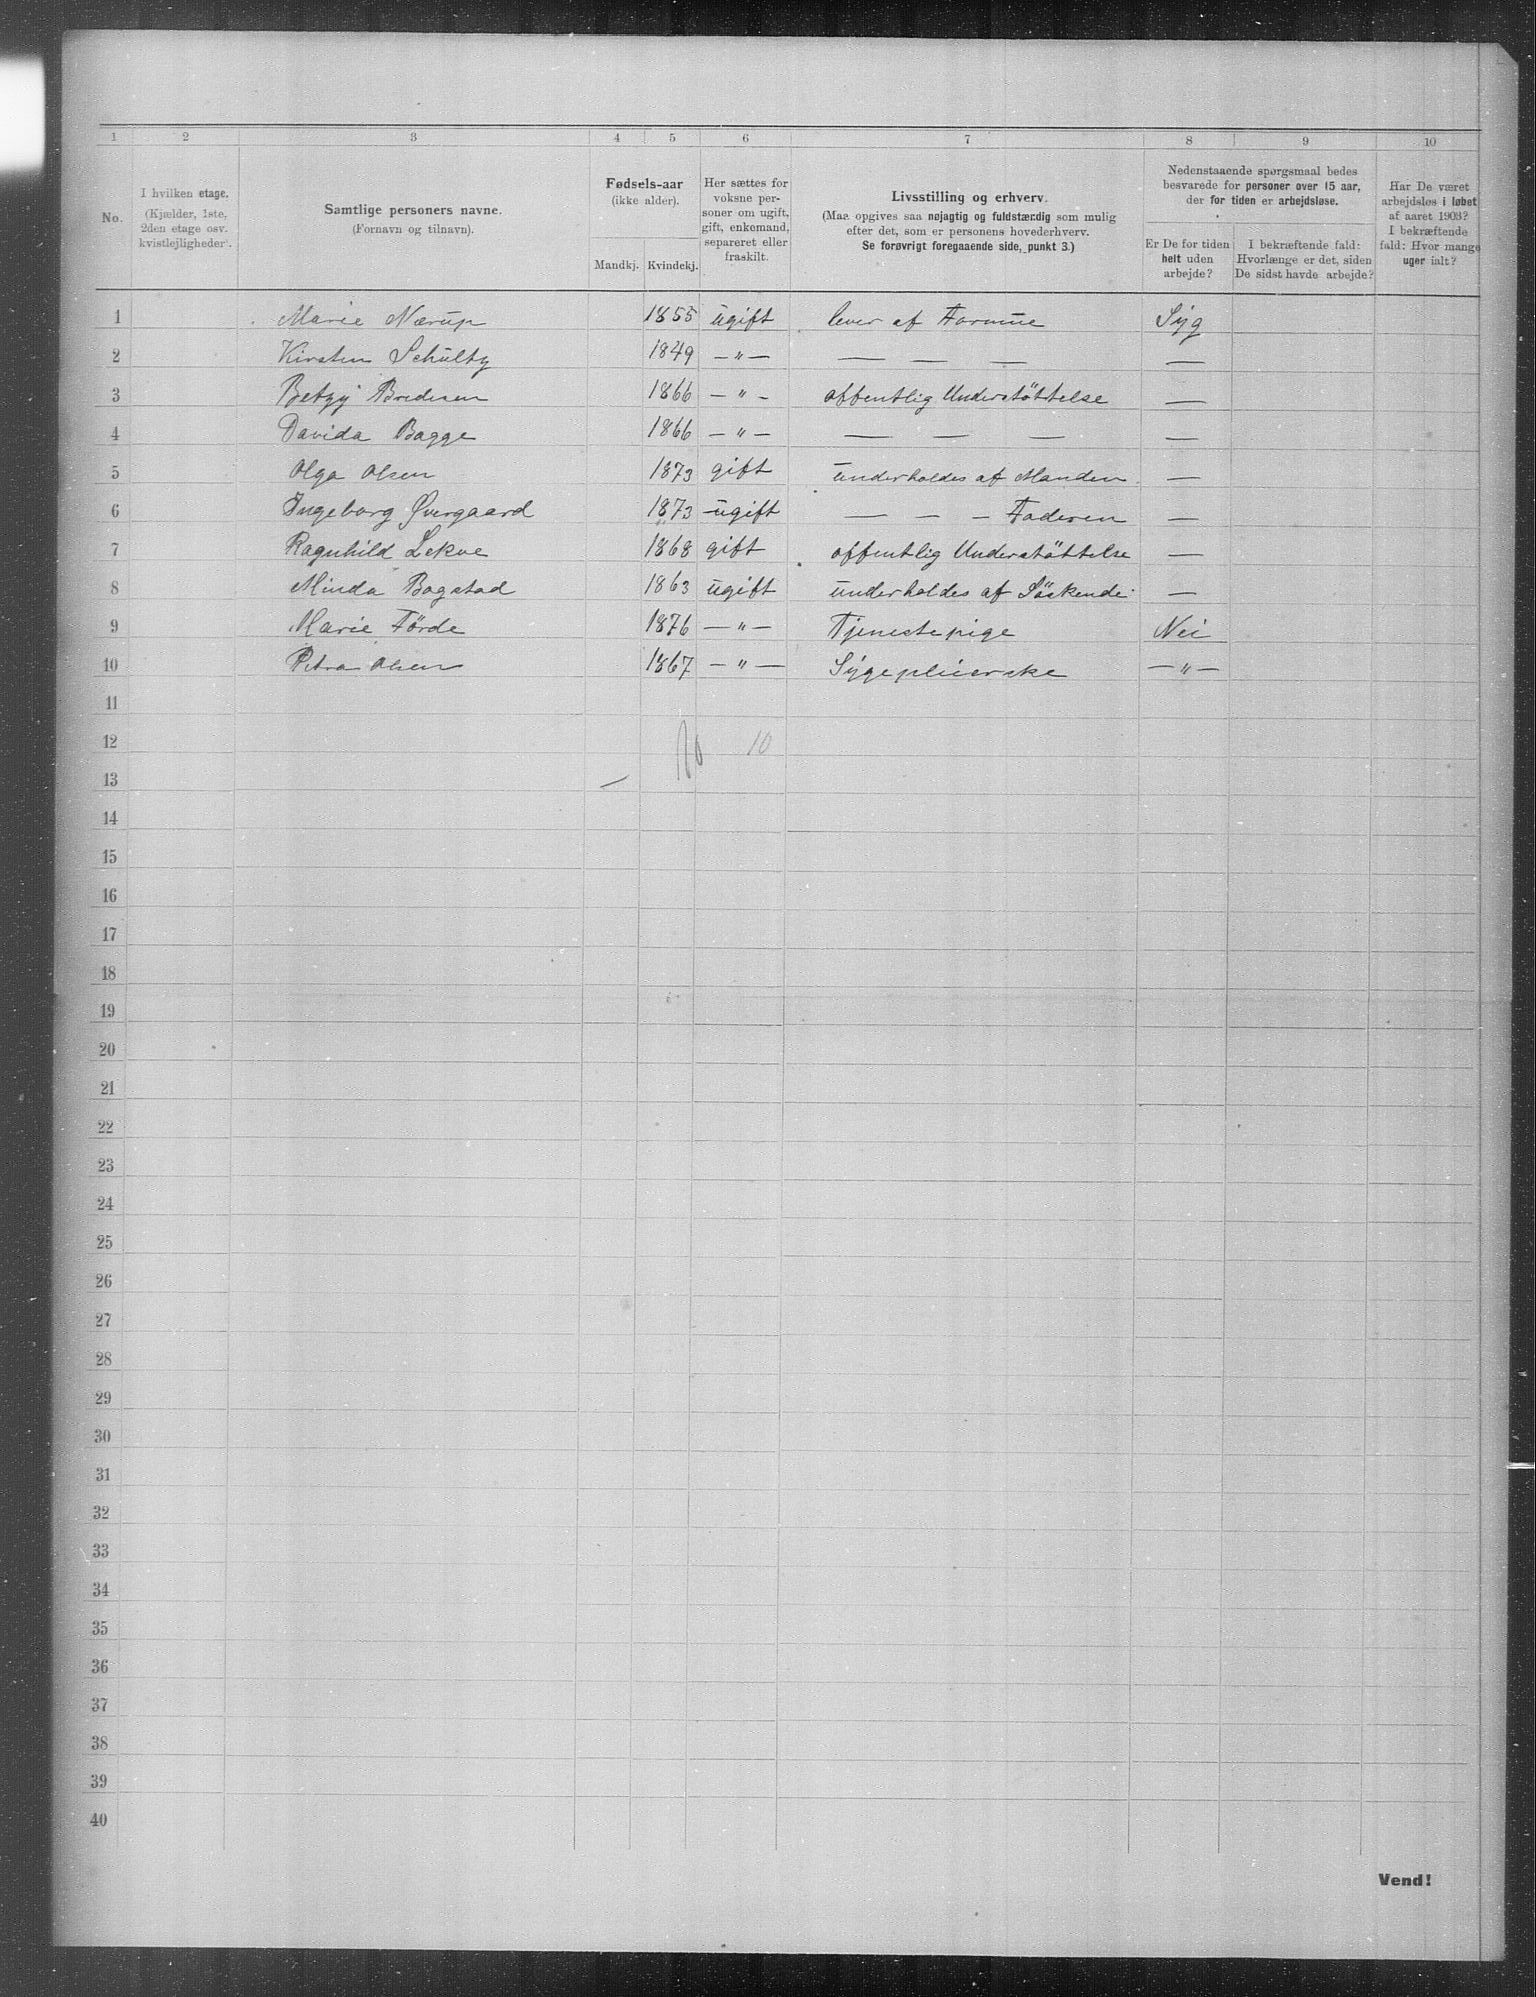 1 2 3 4 5 6 7 8 9 10
No.
I hvilken etage.
(Kjælder, 1ste,
2den etage osv.
kvistlejligheder).
Samtlige personers navne.
(Fornavn og tilnavn).
Fødsels-aar
(ikke alder).
Mandkj. Kvindekj.
Her sættes for
voksne per-
soner om ugift,
gift, enkemand,
separeret eller
fraskilt.
Livsstilling og erhverv.
(Maa opgives saa nøjagtig og fuldstændig som mulig
efter det, som er personens hovederhverv.
Se forøvrigt foregaaende side, punkt 3.)
Nedenstaaende spørgsmaal bedes
besvarede for personer over 15 aar,
der for tiden er arbejdsløse.
Er De for tiden
helt uden
arbejde?
I bekræftende fald:
Hvorlænge er det, siden
De sidst havde arbejde?
Har De været
arbejdsløs i løbet
af aaret 1903?
I bekræftende
fald: Hvor mange
uger ialt?
1 Marie Nærup 1855 ugift lever af Formue Syg
2 Kirsten Schultz 1849 — " — — — — —
3 Betzy Bredesen 1866 — " — offentlig Understöttelse —
4 Davida Bagge 1866 — " — — — — —
5 Olga Olsen 1873 gift underholdes af Manden —
6 Ingeborg Øvergaard 1873 ugift — — — Faderen —
7 Ragnhild Lekve 1868 gift offentlig Understöttelse —
8 Minda Bogstad 1863 ugift underholdes af Söskende —
9 Marie Förde 1876 — " — Tjenestepige Nei
10 Petra Olsen 1867 — " — Sygepleierske — " —
11
12 10 10
13 —
14
15
16
17
18
19
20
21
22
23
24
25
26
27
28
29
30
31
32
33
34
35
36
37
38
39
40
Vend!